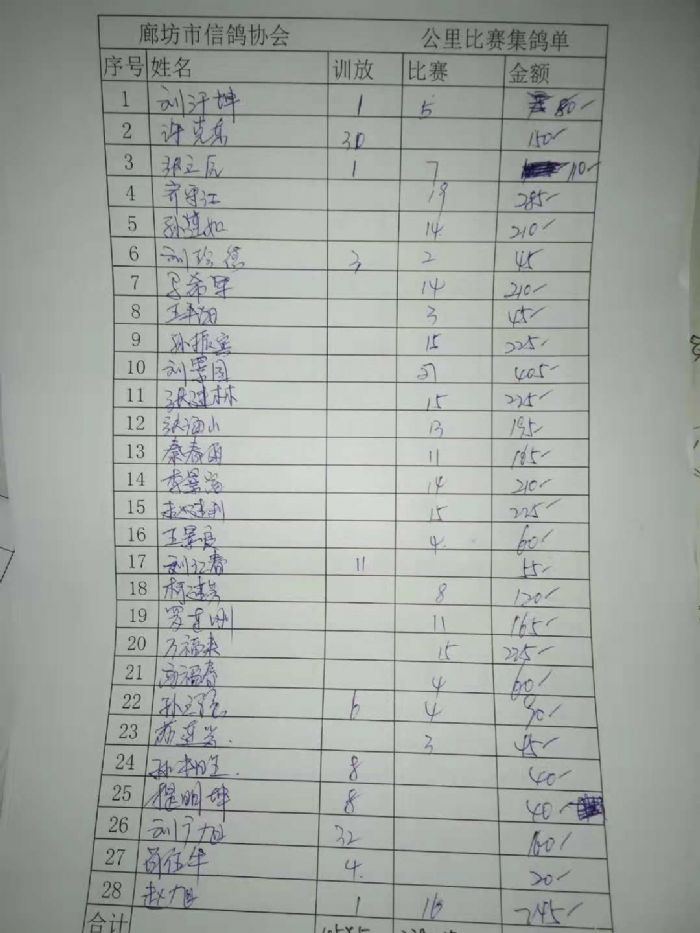 廊坊市信鸽协会 公里比赛集鸽单
序号 姓名 训放 比赛 金额
1 刘汗坤 1 5 80
2 许克东 30 150
3 1 7 110
4 齐宝江 19 285
5 孙建如 14 210
6 刘珍德 3 2 45
7 14 210
8 王平 3 45
9 孙振宾 15 225
10 刘军国 27 405
11 张建林 15 225
12 张海山 13 195
13 秦春雨 11 165
14 李景 14 210
15 赵建利 15 225
16 王景 4 60
17 刘江春 11 55
18 柯建 8 120
19 罗 刚 11 165
20 万福来 15 225
21 高福春 4 60
22 孙 6 4 90
23 3 45
24 孙 8 40
25 程明坤 8 40
26 刘广旭 32 160
27 4 20
28 赵旭 1 16 245
合计